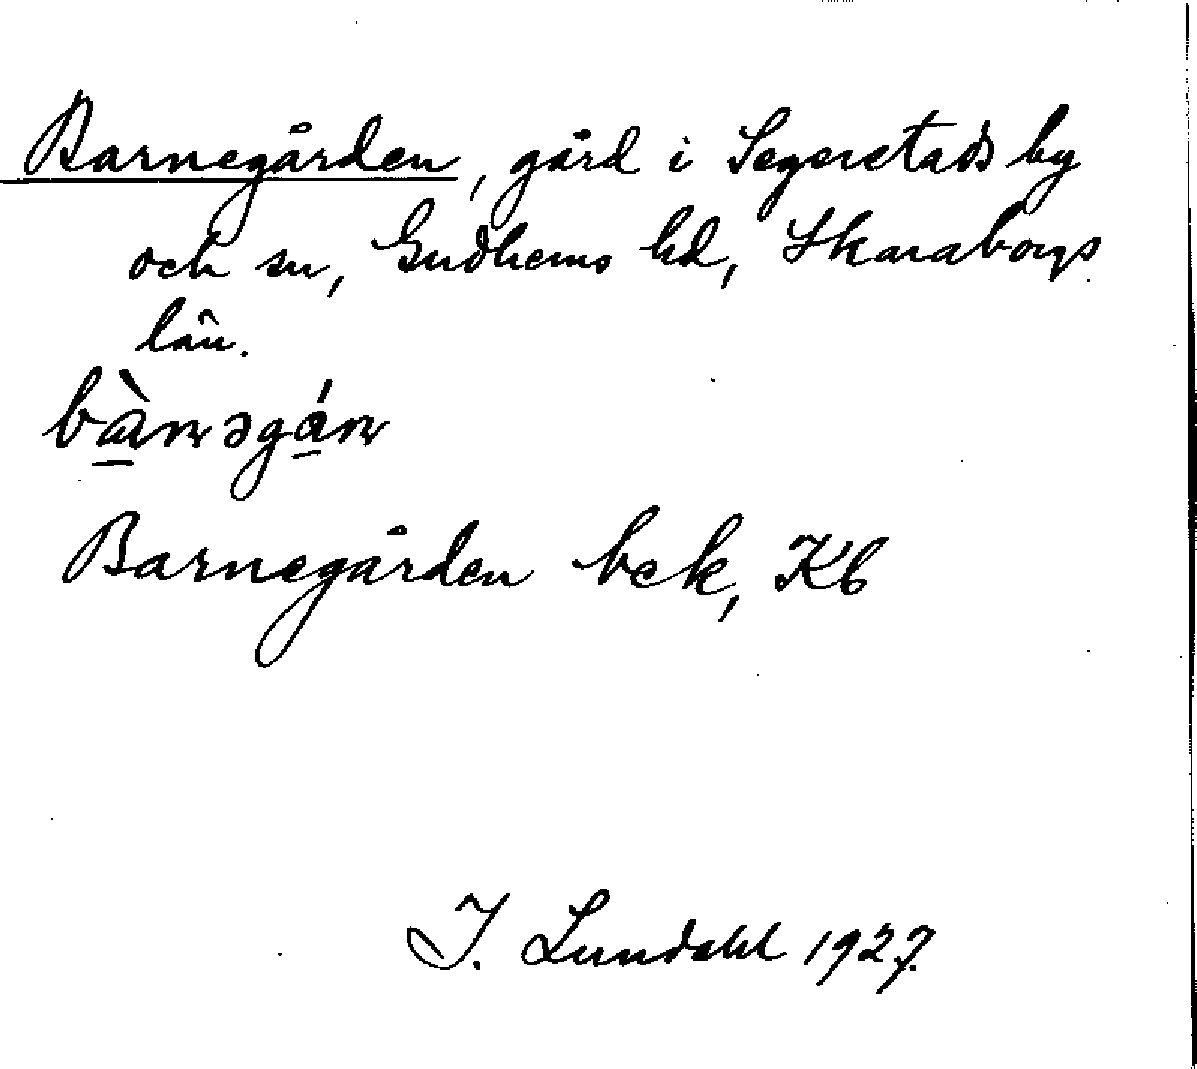 Barnegården, gård i Segerstads by
och sn, Gudhems hd, Skaraborgs
län.
Barnegården bek, Kb
I. Lundahl 1927.